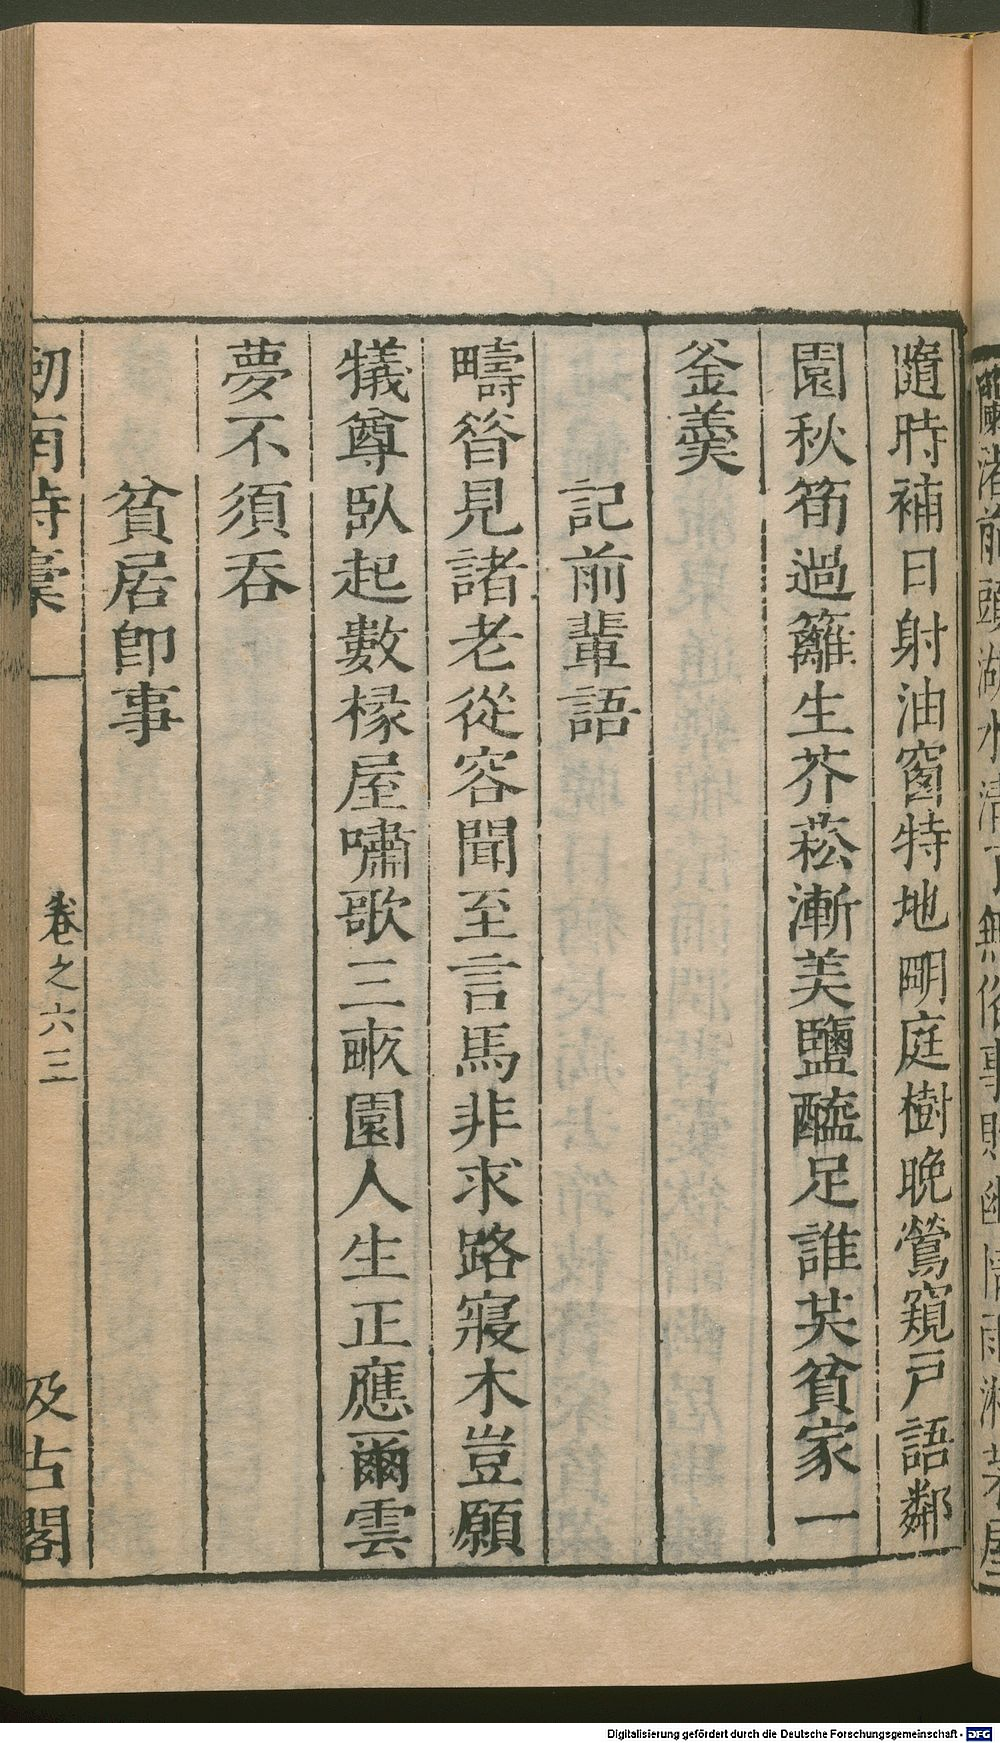 隨時補日射油窗特地明庭樹晚鶯窺戶語鄰
園秋筍過籬生芥菘漸美鹽醯足誰共貧家一
釜羹
記前輩語
疇昔見諸老從容聞至言馬非求路寢木豈願
犧尊臥起數椽屋嘯歌三畝園人生正應爾雲
夢不須吞
貧居即事
劒南詩稾
卷之六三
汲古閣
Digitalisierung gefördert durch die Deutsche Forschungsgemeinschaft - DFG